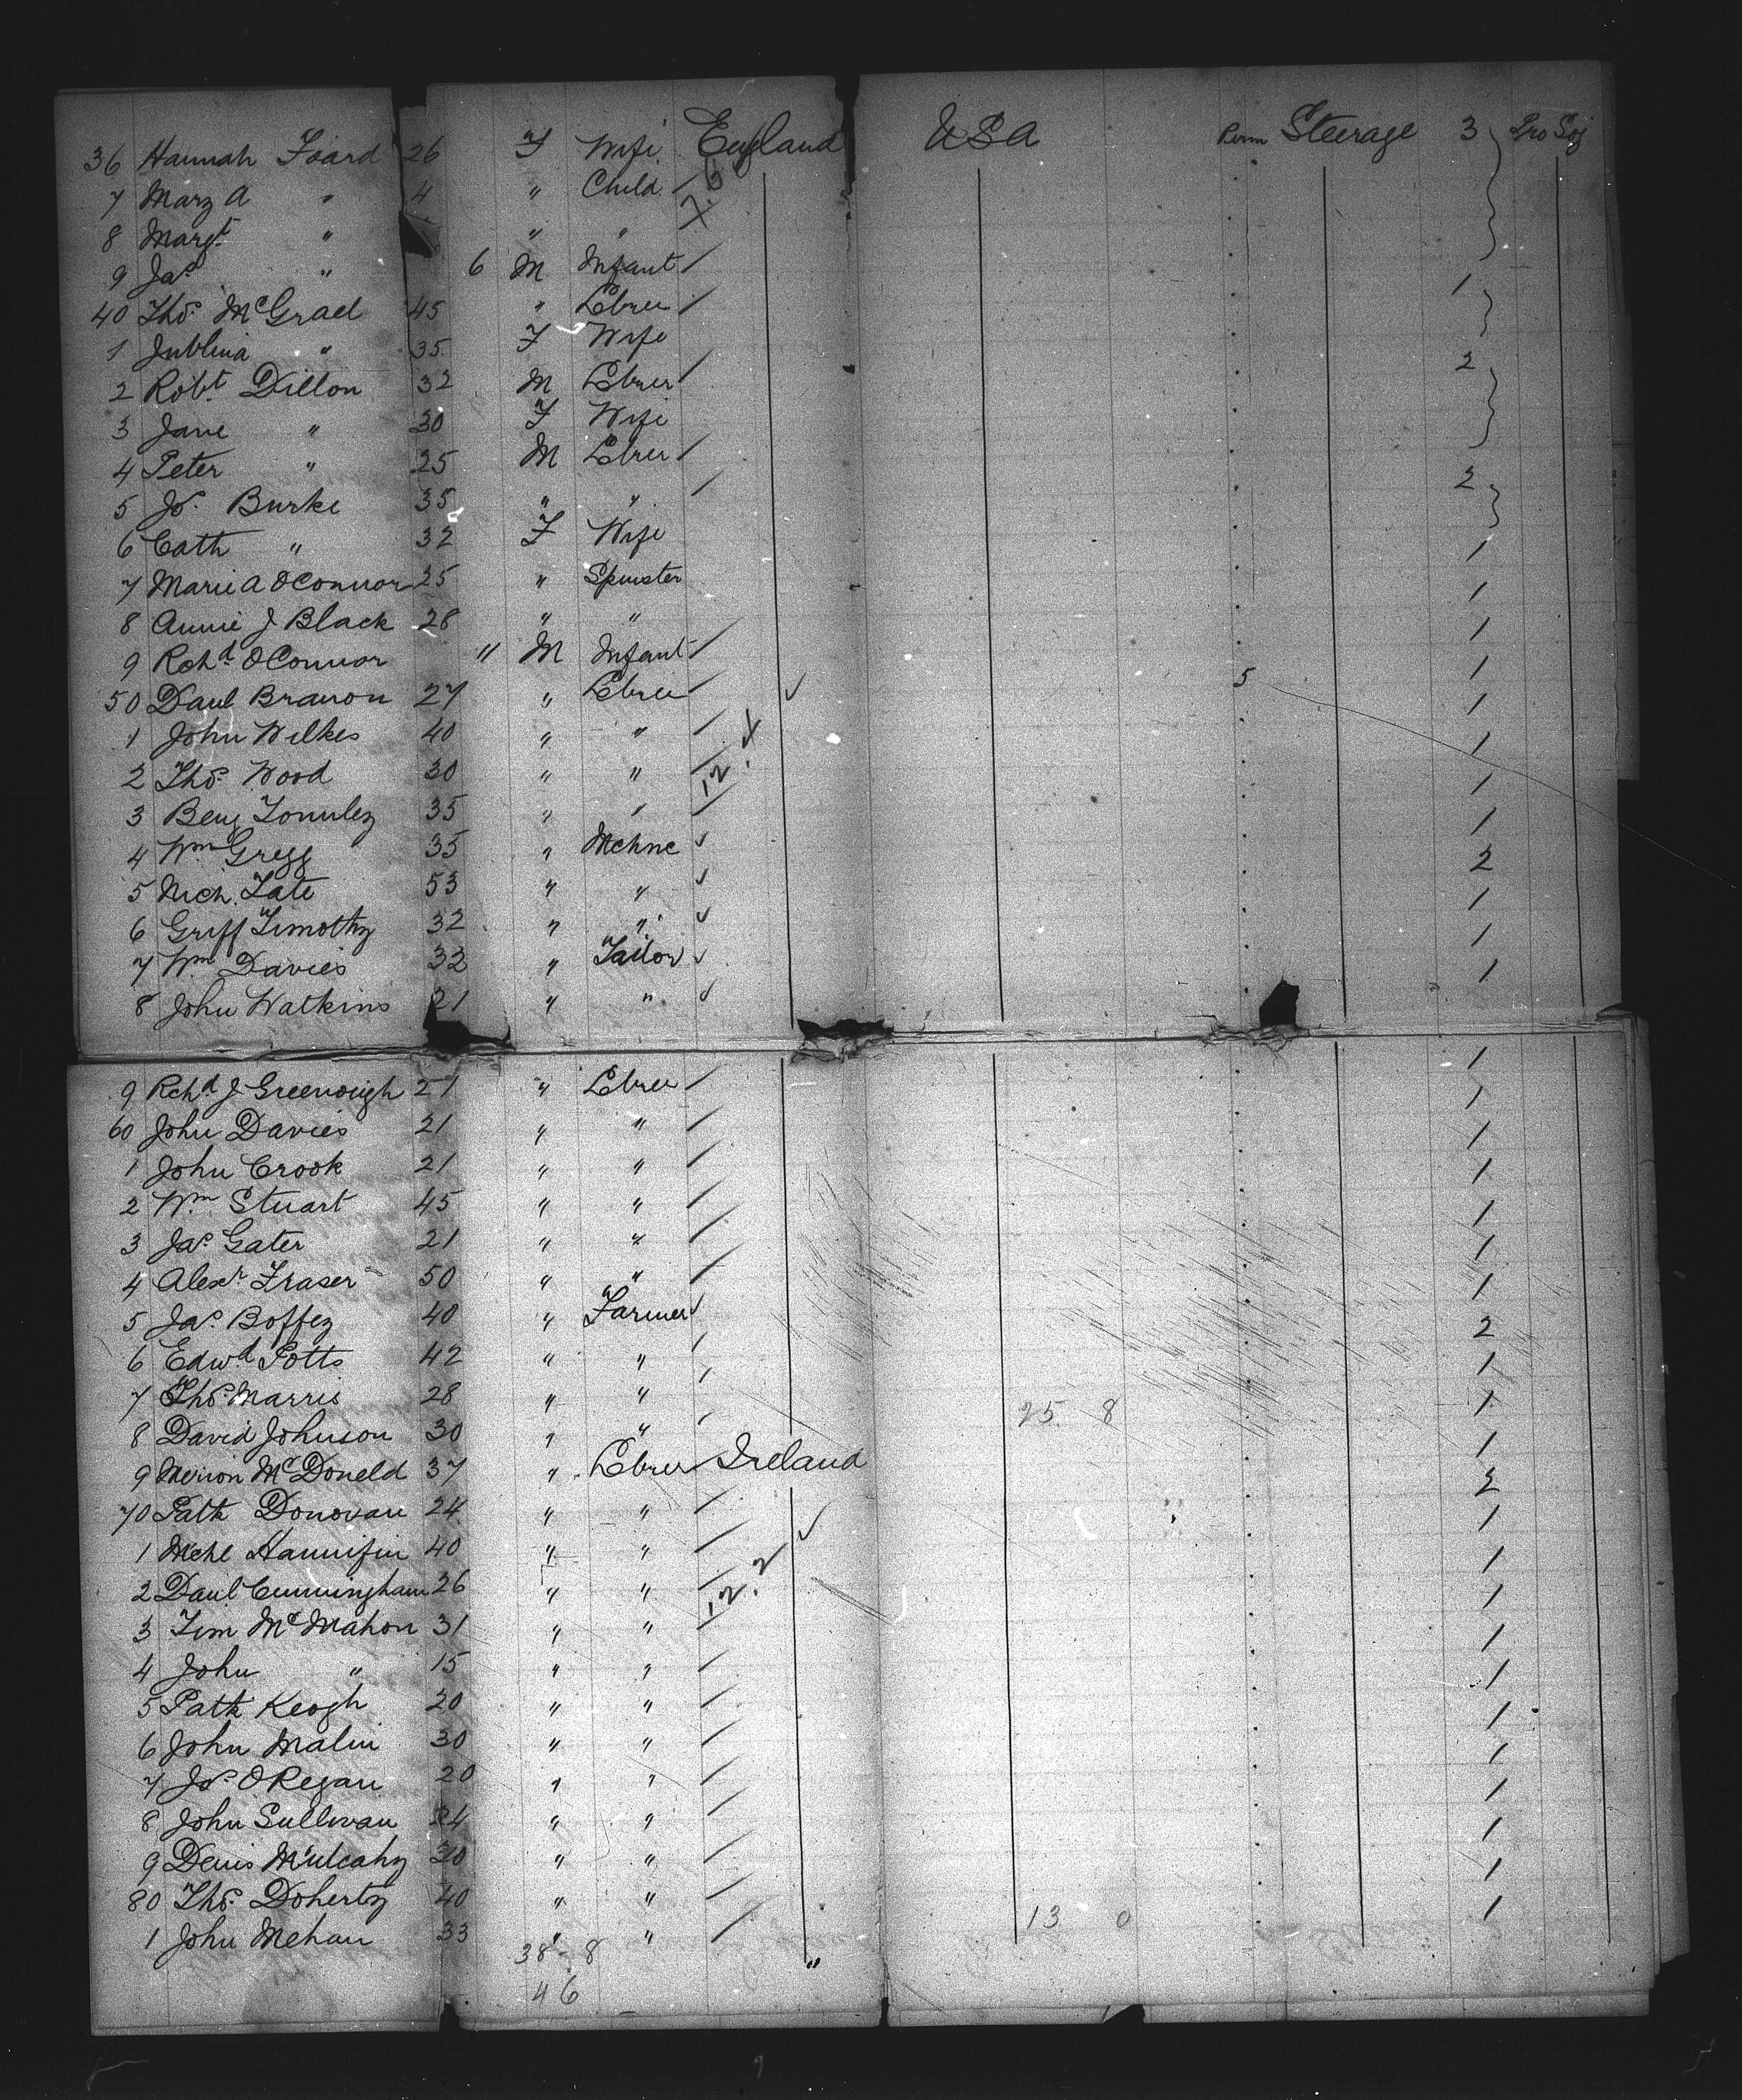 36 Hannah Foard 26 F Wife England USA Perm Steerage 3 Pro Soj
7 Mary A " 4 " Child
8 Margt " " "
9 Jas " 6 M Infant 1
40 Thos McGrael 45 " Lbrer
1 " 35 F Wife
2 Robt Dillon 32 M Lbrer 2
3 Jane " 30 F Wife
4 Peter " 25 M Lbrer
5 Jos Burke 35 " " 2
6 Cath " 32 F Wife
7 Marie A OConnor 25 " Spinster 1
8 Annie J Black 28 " " 1
9 Rchd OConnor 11 M Infant 1
50 Danl Branon 27 " Lbrer 5 1
1 John Wilkes 40 " " 1
2 Thos Wood 30 " " 12.X 1
3 Benj 35 " " 1
4 Wm Gregg 35 " Mchnc 1
5 Nich. Tate 53 " " 2
6 Griff Timothy 32 " " 1
7 Wm Davies 32 " Tailor 1
8 John Watkins 21 " " 1
9 Rchd J Greenough 21 " Lbrer 1
60 John Davies 21 " " 1
1 John Crook 21 " " 1
2 Wm Stuart 45 " " 1
3 Jas Gater 21 " " 1
4 Alexr Fraser 50 " " 1
5 Jas Boffey 40 " Farmer 1
6 Edwd Potts 42 " " 2
7 Thos Marris 28 " " 1
8 David Johnson 30 " " 25 8 1
9 McDoneld 37 " Lbrer Ireland 1
70 Patk Donovan 24 " " 2
1 Mchl Hannifin 40 " " 1
2 Danl Cunningham 26 " " 12.2 1
3 Tim McMahon 31 " " 1
4 John " 15 " " 1
5 Patk Keogh 20 " " 1
6 John Malin 30 " " 1
7 Jos ORegan 20 " " 1
8 John Sullivan 24 " " 1
9 Denis Mulcahy 30 " " 1
80 Thos Doherty 40 " " 13 0 1
1 John Mehan 33 " "
38 - 8
46